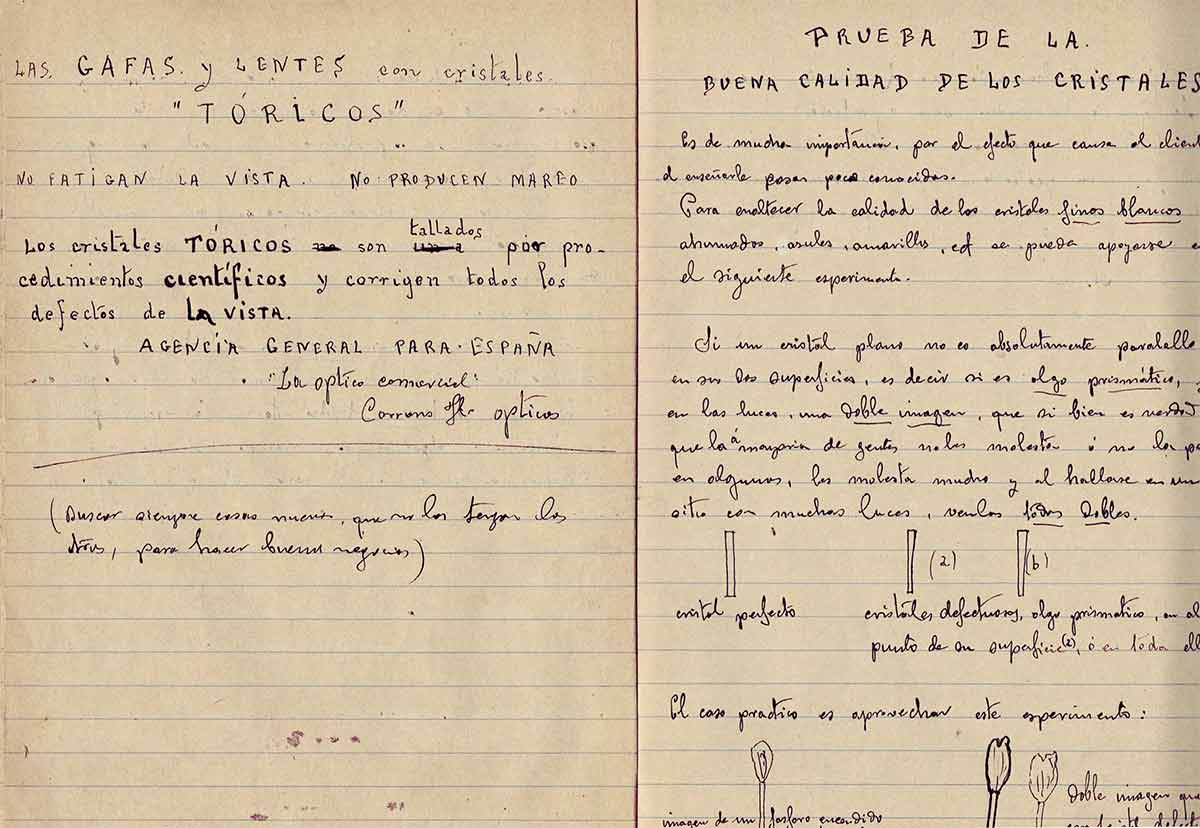 LAS GAFAS y LENTES con cristales
"TÓRICOS"
NO FATIGAN LA VISTA. NO PRODUCEN MAREO
Los cristales TÓRICOS son tallados por pro-
cedimientos científicos y corrigen todos los
defectos de la VISTA.
AGENCIA GENERAL PARA ESPAÑA
"La optico comercial"
Corrons opticos
(Buscar siempre cosas nuevas, que no las tengan los
otros, para hacer buenos negocios)
PRUEBA DE LA
BUENA CALIDAD DE LOS CRISTALES
Es de mucha importancia, por el efecto que causa al client
el enseñarle cosas poco conocidas.
Para enaltecer la calidad de los cristales finos blancos
ahumados, azules, amarillos, ect se pueda apoyarse e
el siguiente esperimento.
Si un cristal plano no es absolutamente paralello
en sus dos superficies, es decir si es algo prismático,
en las luces, una doble imagen, que si bien es verdad
que la á mayoria de gentes no les molesta ó no la
en algunos, les molesta mucho y al hallarse en un
sitio con muchas luces, venlas todas dobles.
(a) (b)
cristal perfecto cristales defectuosos, algo prismatico, en al
punto de su superficie (a), ó en toda ell
El caso practico es aprovechar este esperimento:
doble imagen que
imagen de un fosforo encendido